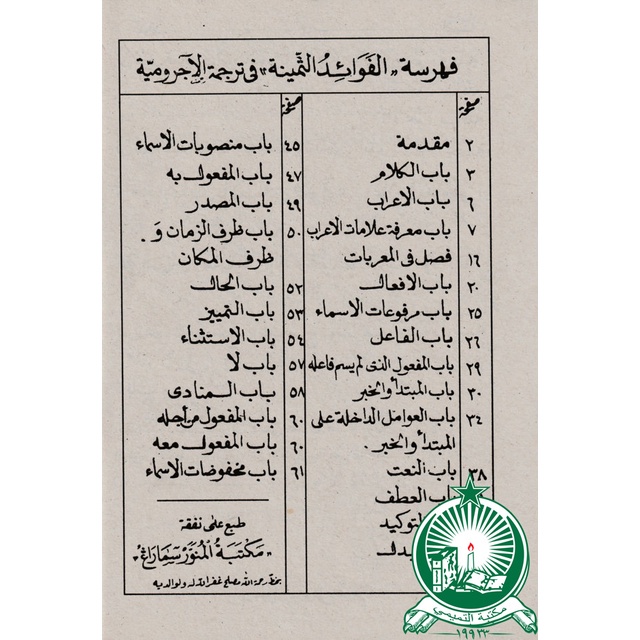 فهرسة ,,الفَوَائِدُ الثَّمِينة،، فى ترجمة الآجرومية
صفحة
٢ مقدمة
٣ باب الكلام
٦ باب الاعراب
٧ باب معرفة علامات الاعراب
١٦ فصل فى المعربات
٢٠ باب الافعال
٢٥ باب مرفوعات الاسماء
٢٦ باب الفاعل
٢٩ باب المفعول الذى لم يسم فاعله
٣٠ باب المبتدأ والخبر
٣٤ باب العوامل الداخلة على
المبتدأ والخبر .
٣٨ باب النعت
باب العطف
التوكيد
صفحة
٤٥ باب منصوبات الاسماء
٤٧ باب المفعول به
٤٩ باب المصدر
٥٠ باب ظرف الزمان وَ .
ظرف المكان
٥٢ باب الحال
٥٣ باب التمييز
٥٤ باب الاستثناء
٥٧ باب لا
٥٨ باب المنادى
٦٠ باب المفعول من أجله
٦٠ باب المفعول معه
٦١ باب مخفوضات الاسماء
طبع على نفقة
"مَكتبَةُ المُنَوَّر سَمَارَاڠ"
بخط رحمة الله مصلح غفر الله له ولوالديه
مكتبة التميمي
١٩٩٣